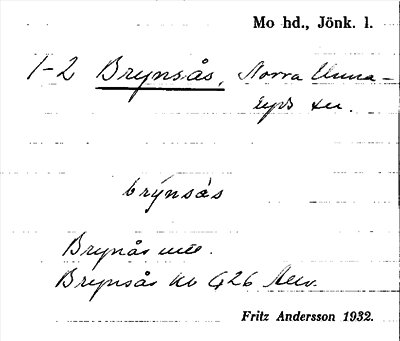 Mo hd., Jönk. l.
1-2 Brynsås, Norra Unna-
ryds sn.
brýnsås
Brynås
Brynsås
Fritz Andersson 1932.